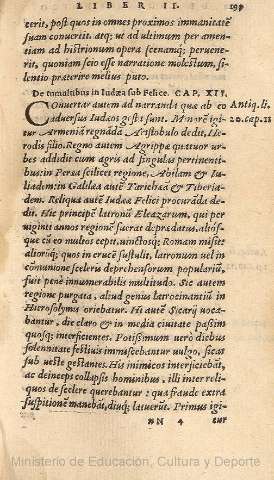 LIBER II. 199
cerit, post quos in omnes proximos immanitatẽ
suam conuertit. atq; ut ad ultimum per amen-
tiam ad histrionum opera scenamq; peruene-
rit, quoniam scio esse narratione molestum, si-
lentio praeterire melius puto.
De tumultibus in Iudæa sub Felice. CAP. XII.
Conuertar autem ad narrandũ quæ ab eo
aduersus Iudæos gesta sunt. Minorẽ igi-
tur Armeniã regnãdã Aristobulo dedit, He-
rodis filio. Regno autem Agrippæ quatuor ur-
bes addidit cum agris ad singulas pertinenti-
bus: in Peræa scilicet regione, Abilam & Iu-
liadem: in Galilæa autẽ Taricheã & Tiberia-
dem. Reliquæ autẽ Iudææ Felici procurãdã de-
dit. Hic principẽ latronũ Eleazarum, qui per
uiginti annos regionẽ fuerat depredatus, aliosq;
cũ eo multos cepit, uinctosq; Romam misit:
aliorũq; quos in crucẽ sustulit, latronum uel in
comunione sceleris deprehensorum populariũ,
fuit penè innumerabilis multitudo. Sic autem
regione purgata, aliud genus latrocinantiũ in
Hierosolymis oriebatur. Hi autẽ Sicarij voca-
bantur, die claro & in media ciuitate passim
quosq; interficientes. Potissimum uerò diebus
solennitate festiuis immiscebantur uulgo, sicas
sub ueste gestantes. His inimicos interficiebãt,
ac deinceps collapsis hominibus, illi inter reli-
quos de scelere querebantur: qua fraude extra
suspitionẽ manebãt, diuq; latuerũt. Primus igi-
NN 4 tur
Antiq. li.
20. cap.11
Ministerio de Educación, Cultura y Deporte